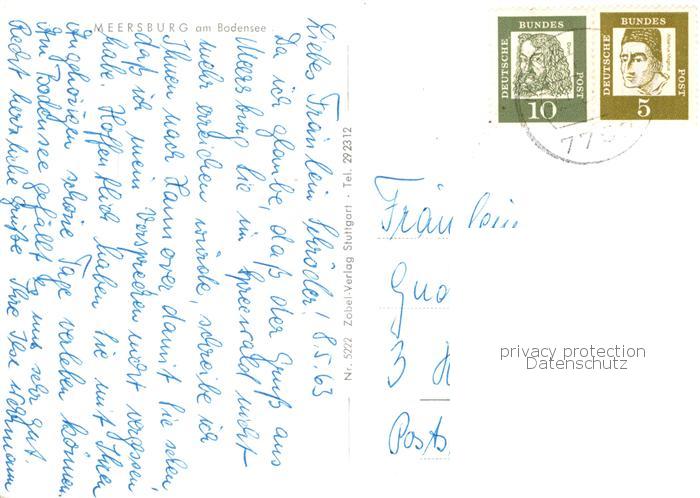 MEERSBURG am Bodensee
Liebes Fräulein Schröder! 8.5.63
Da ich glaube, daß der Gruß aus
Meersburg Sie im Spreewald nicht
mehr erreichen würde, schreibe ich
Ihnen nach Hannover damit Sie sehen,
daß ich mein Versprechen nicht vergessen
habe. Hoffentlich haben Sie mit Ihren
Angehörigen schöne Tage verleben können.
Am Bodensee gefällt es uns sehr gut.
Recht herzliche Grüße Ihre Ilse
Nr. 5222 Zobel-Verlag Stuttgart · Tel. 292312
DEUTSCHE BUNDES POST
Dürer
10
DEUTSCHE BUNDES POST
Albertus Magnus
5
Fräulein
3 H
Posts
privacy protection
Datenschutz